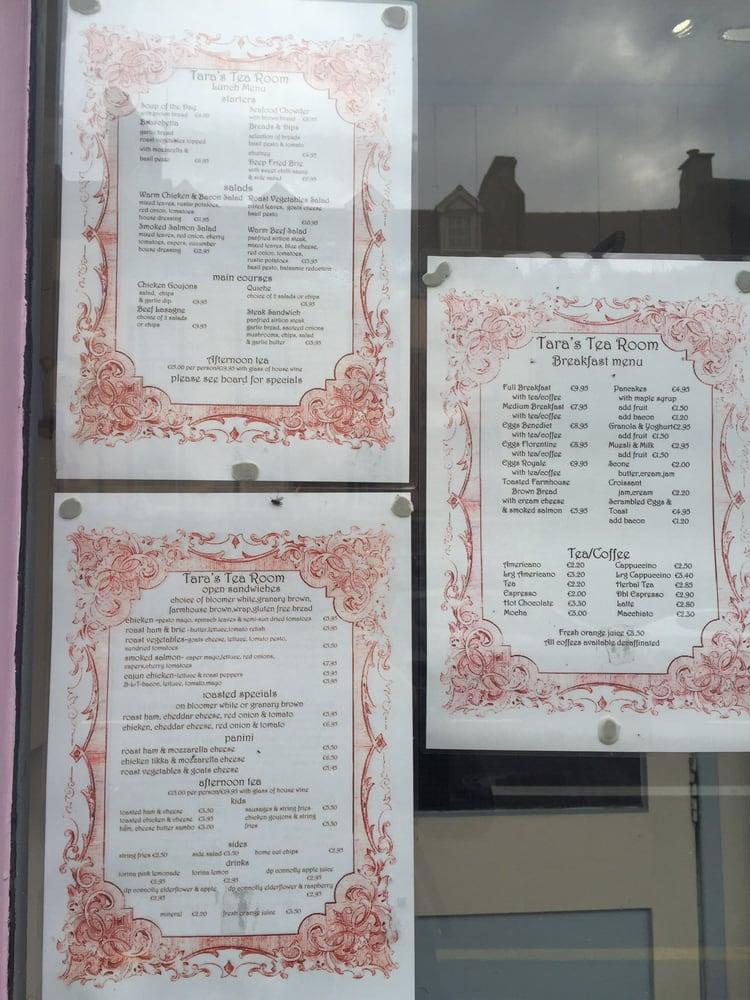 Tara's Tea Room
Lunch Menu
starters
Soup of the Day
with brown bread
Bruschetta
garlic bread
roast vegetables topped
with mozzarella &
basil pesto €6.95
Seafood Chowder
with brown bread
Breads & Dips
selection of breads
basil pesto & tomato
chutney
Deep Fried Brie
with sweet chilli sauce
& side salad
salads
Warm Chicken & Bacon Salad
mixed leaves, rustic potatoes,
red onion, tomatoes
house dressing
Smoked Salmon Salad
mixed leaves, red onion, cherry
tomatoes, capers, cucumber
house dressing
Roast Vegetables Salad
mixed leaves, goats cheese
basil pesto
Warm Beef Salad
panfried sirloin steak,
mixed leaves, blue cheese,
red onion, tomatoes,
rustic potatoes
basil pesto, balsamic reduction
main courses
Chicken Goujons
salad, chips
& garlic dip €9.95
Beef Lasagne
choice of 2 salads
or chips €9.95
Quiche
choice of 2 salads or chips
Steak Sandwich
panfried sirloin steak
garlic bread, sauteed onions
mushrooms, chips, salad
& garlic butter
Afternoon tea
€15.00 per person/€19.95 with glass of house wine
please see board for specials
Tara's Tea Room
Breakfast menu
Full Breakfast €9.95
with tea/coffee
Medium Breakfast €7.95
with tea/coffee
Eggs Benedict €8.95
with tea/coffee
Eggs Florentine €8.95
with tea/coffee
Eggs Royale €9.95
with tea/coffee
Toasted Farmhouse
Brown Bread
with cream cheese
& smoked salmon €5.95
Pancakes €4.95
with maple syrup
add fruit €1.50
add bacon €1.20
Granola & Yoghurt €2.95
add fruit €1.50
Muesli & Milk €2.95
add fruit €1.50
Scone €2.00
butter,cream,jam
Croissant
jam,cream €2.20
Scrambled Eggs &
Toast €4.95
add bacon €1.20
Tea/Coffee
Americano €2.20
Lrg Americano €3.20
Tea €2.20
Espresso €2.00
Hot Chocolate €3.30
Mocha €3.00
Cappuccino €2.50
Lrg Cappuccino €3.40
Herbal Tea €2.85
Dbl Espresso €2.90
Latte €2.80
Macchiato €2.30
Fresh orange juice €3.50
All coffees available decaffinated
Tara's Tea Room
open sandwiches
choice of bloomer white,granary brown,
farmhouse brown,wrap,gluten free bread
chicken -pesto mayo, spinach leaves & semi-sun dried tomatoes
roast ham & brie -butter,lettuce,tomato relish
roast vegetables-goats cheese, lettuce, tomato pesto,
sundried tomatoes
smoked salmon- caper mayo,lettuce, red onions,
capers,cherry tomatoes €7.95
cajun chicken-lettuce & roast peppers
B-L-T-bacon, lettuce, tomato,mayo
toasted specials
on bloomer white or granary brown
roast ham, cheddar cheese, red onion & tomato €5.95
chicken, cheddar cheese, red onion & tomato €6.95
panini
roast ham & mozzarella cheese €5.50
chicken tikka & mozzarella cheese €6.50
roast vegetables & goats cheese €5.45
afternoon tea
€15.00 per person/€19.95 with glass of house wine
kids
toasted ham & cheese €3.50
toasted chicken & cheese €3.95
ham, cheese butter sambo €3.00
sausages & string fries €5.50
chicken goujons & string
fries €5.50
sides
string fries €2.50 side salad €3.50 home cut chips €2.95
drinks
lorina pink lemonade
€2.95
lorina lemon
€2.95
dp connolly apple juice
€2.95
dp connolly elderflower & apple
€2.95
dp connolly elderflower & raspberry
€2.95
mineral €2.20 fresh orange juice €3.50